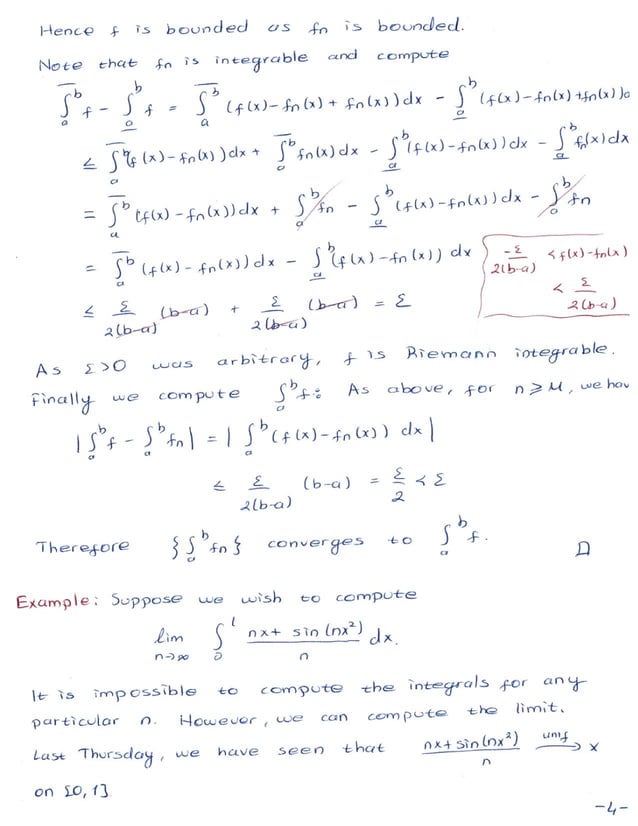 Hence f is bounded as fn is bounded.
Note that fn is integrable and compute
∫̅_a^b f - ∫̲_a^b f = ∫̅_a^b (f(x)-fn(x) + fn(x)) dx - ∫̲_a^b (f(x)-fn(x)+fn(x)) d
≤ ∫̅_a^b (f(x)-fn(x)) dx + ∫̅_a^b fn(x) dx - ∫̲_a^b (f(x)-fn(x)) dx - ∫̲_a^b fn(x) dx
= ∫̅_a^b (f(x)-fn(x)) dx + ∫_a^b fn - ∫̲_a^b (f(x)-fn(x)) dx - ∫_a^b fn
= ∫̅_a^b (f(x)-fn(x)) dx - ∫̲_a^b (f(x)-fn(x)) dx
-ε/2(b-a) < f(x)-fn(x)
< ε/2(b-a)
≤ ε/2(b-a) (b-a) + ε/2(b-a) (b-a) = ε
As ε>0 was arbitrary, f is Riemann integrable.
Finally we compute ∫_a^b f: As above, for n ≥ M, we hav
|∫_a^b f - ∫_a^b fn| = |∫_a^b (f(x)-fn(x)) dx|
≤ ε/2(b-a) (b-a) = ε/2 < ε
Therefore {∫_a^b fn} converges to ∫_a^b f. □
Example: Suppose we wish to compute
lim n→∞ ∫_0^1 (nx+ sin(nx²))/n dx.
It is impossible to compute the integrals for any
particular n. However, we can compute the limit.
Last Thursday, we have seen that (nx+sin(nx²))/n unif→ x
on [0,1]
-4-